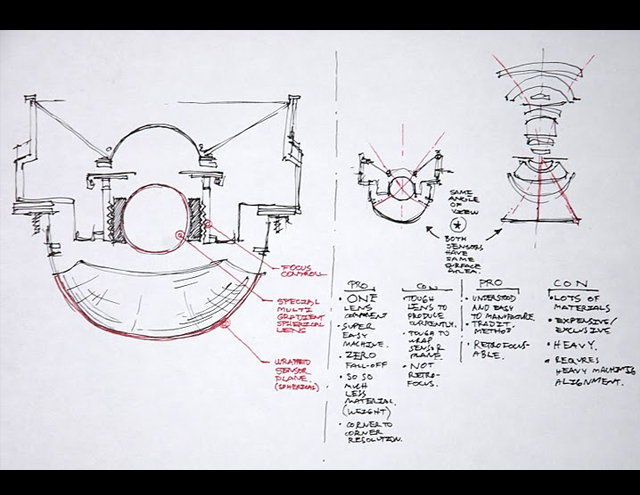 FOCUS
CONTROL
SPECIAL
MULTI
GRADIENT
SPHERICAL
LENS
WRAPPED
SENSOR
PLANE.
(SPHERICAL)
SAME
ANGLE
OF
VIEW
BOTH
SENSORS
HAVE
SAME
SURFACE
AREA.
PRO
• ONE
LENS
COMPONENT
• SUPER
EASY
MACHINE.
• ZERO
FALL-OFF
• SO SO
MUCH
LESS
MATERIAL.
(WEIGHT)
• CORNER TO
CORNER
RESOLUTION.
CON
• TOUGH
LENS TO
PRODUCE
CURRENTLY.
• TOUGH TO
WRAP
SENSOR
PLANE.
• NOT
RETRO-
FOCUS.
PRO
• UNDERSTOOD
AND EASY
TO MANUFACTURE
TRADIT.
METHOD
• RETROFOCUS-
ABLE.
CON
• LOTS OF
MATERIALS
• EXPENSIVE/
EXCLUSIVE
• HEAVY.
• REQUIRES
HEAVY MACHINING
ALIGNMENT.